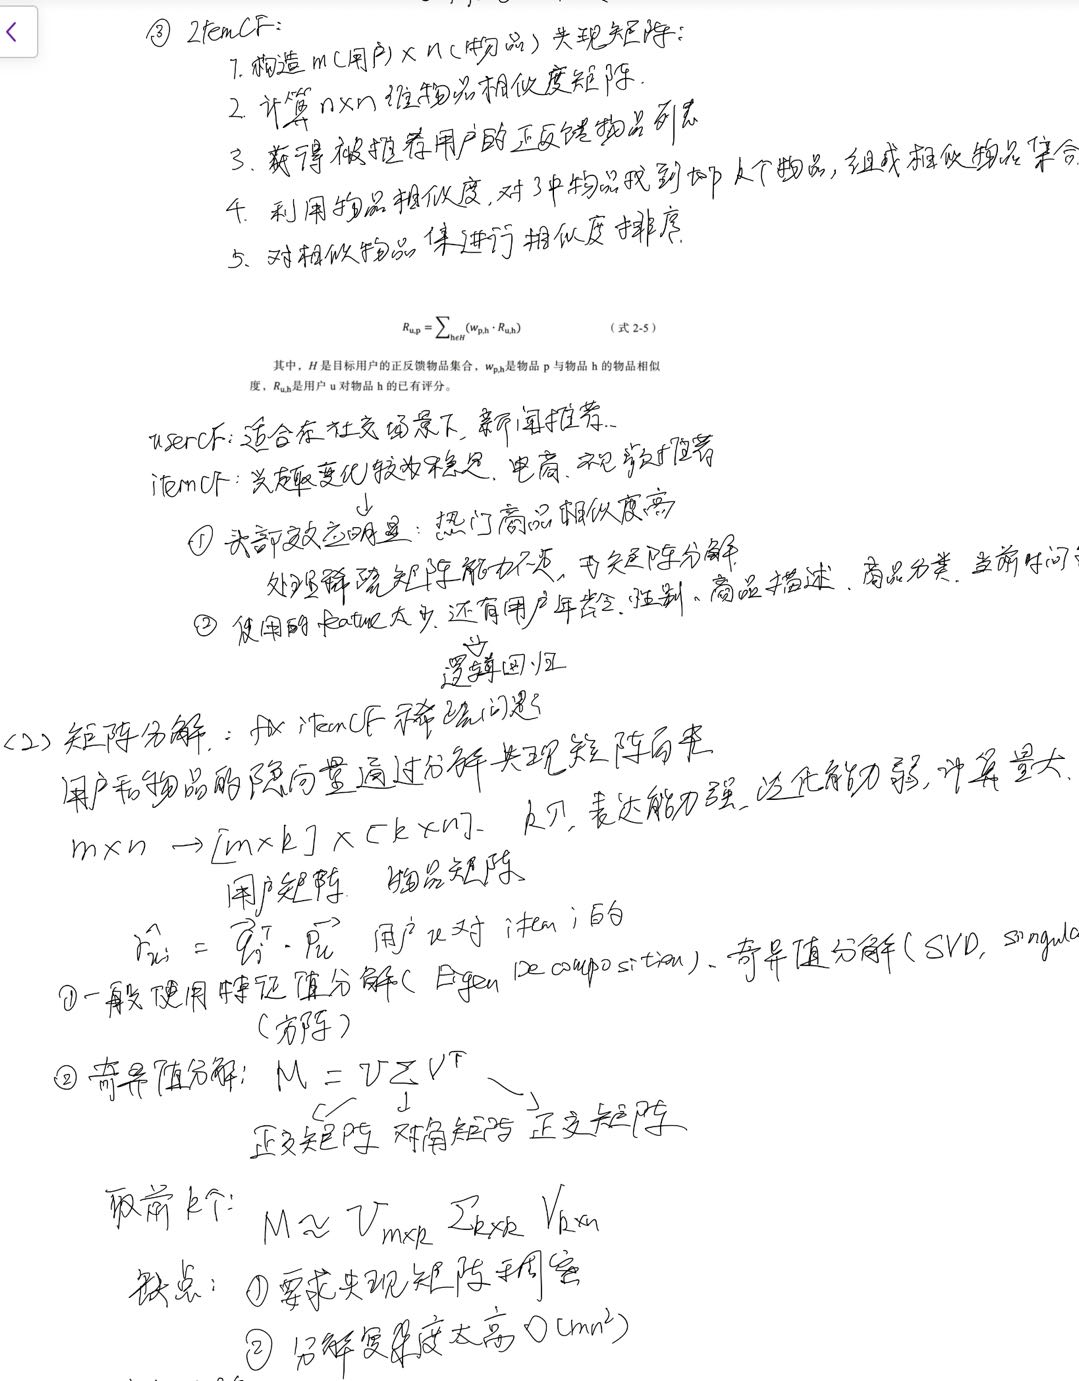 ③ ItemCF:
1. 构造 m(用户) × n(物品) 共现矩阵:
2. 计算 n×n 维物品相似度矩阵.
3. 获得被推荐用户的正反馈物品列表
4. 利用物品相似度,对3中物品找到 top k个物品,组成相似物品集合
5. 对相似物品集进行相似度排序.
R_{u,p} = ∑_{h∈H}(w_{p,h} · R_{u,h}) （式 2-5）
其中，H 是目标用户的正反馈物品集合，w_{p,h}是物品 p 与物品 h 的物品相似
度，R_{u,h}是用户 u 对物品 h 的已有评分。
userCF: 适合在社交场景下, 新闻推荐..
itemCF: 兴趣变化较为稳定. 电商. 视频推荐
↓
① 头部效应明显: 热门商品相似度高
处理稀疏矩阵能力不足, 矩阵分解
② 使用的 feature 太少, 还有用户年龄、性别、商品描述、商品分类、当前时间
逻辑回归
(2) 矩阵分解: fix itemCF 稀疏问题
用户和物品的隐向量通过分解共现矩阵而来
m×n → [m×k] × [k×n]. k↑, 表达能力强、泛化能力弱, 计算量大.
用户矩阵 物品矩阵
r̂_{ui} = q_i^T · p_u 用户 u 对 item i 的
① 一般使用特征值分解( Eigen Decomposition )、奇异值分解( SVD, singula
(方阵)
② 奇异值分解: M = UΣV^T
正交矩阵 对角矩阵 正交矩阵
取前k个: M ≈ U_{m×k} Σ_{k×k} V_{k×n}
缺点: ① 要求共现矩阵稠密
② 分解复杂度太高 O(mn²)